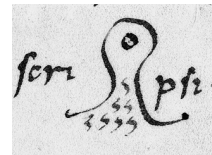 scri psi